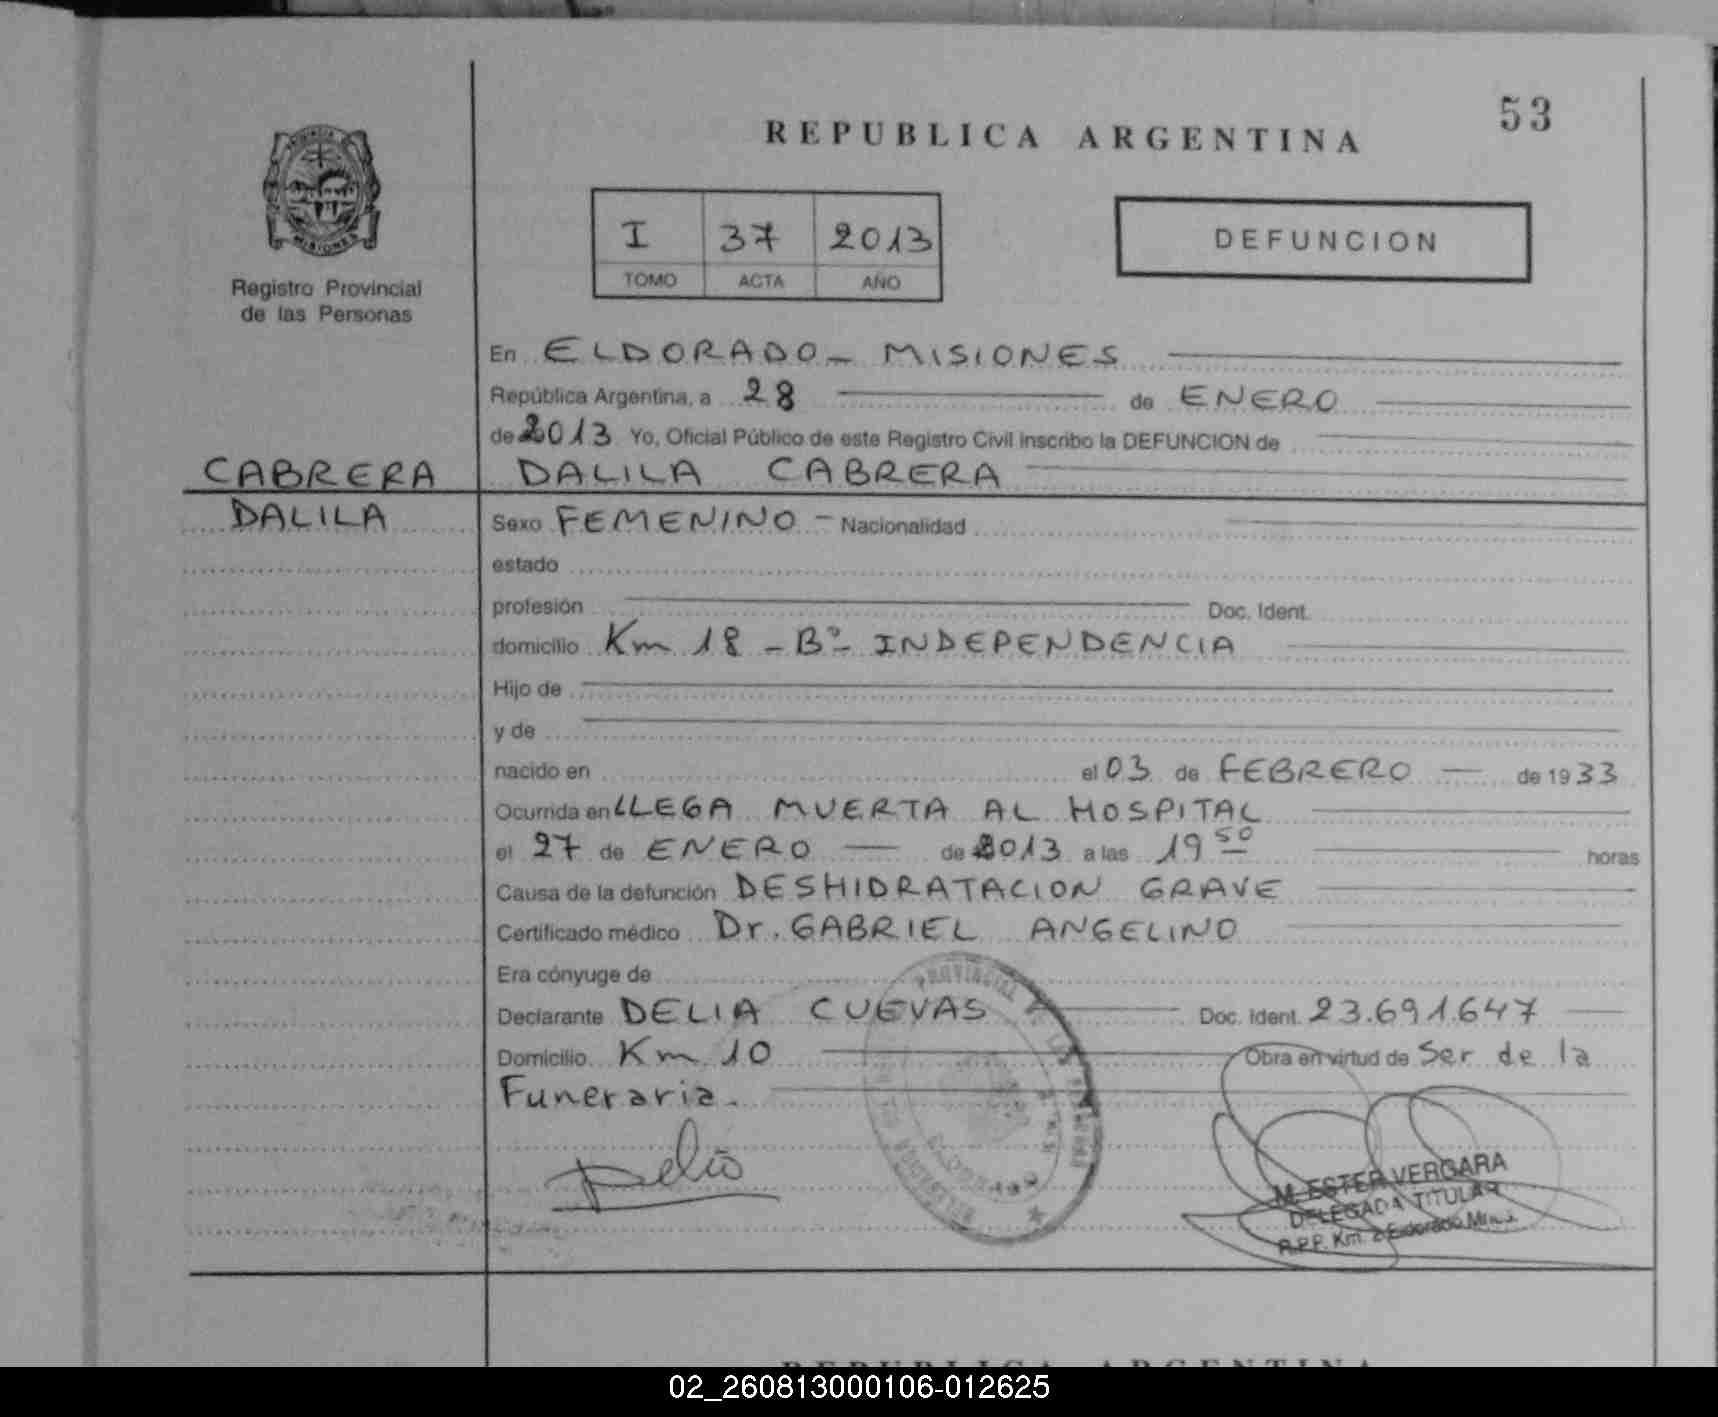 53
REPUBLICA ARGENTINA
PROVINCIA
MISIONES
Registro Provincial
de las Personas
I 37 2013
TOMO ACTA AÑO
DEFUNCION
En ELDORADO - MISIONES
República Argentina, a 28 de ENERO
de 2013 Yo, Oficial Público de este Registro Civil inscribo la DEFUNCION de
CABRERA DALILA CABRERA
DALILA Sexo FEMENINO - Nacionalidad
estado
profesión Doc. Ident.
domicilio Km 18 - Bº - INDEPENDENCIA
Hijo de
y de
nacido en el 03 de FEBRERO de 1933
Ocurrida en LLEGA MUERTA AL HOSPITAL
el 27 de ENERO de 2013 a las 19 50 horas
Causa de la defunción DESHIDRATACION GRAVE
Certificado médico Dr. GABRIEL ANGELINO
Era cónyuge de
Declarante DELIA CUEVAS Doc. Ident. 23.691.647
Domicilio Km 10 Obra en virtud de Ser de la
Funeraria.
PROVINCIAL DE LAS
Delia
M. ESTER VERGARA
DELEGADA TITULAR
R.P.P. Km. 2 Eldorado Mnes
REPUBLICA ARGENTINA
02_260813000106-012625